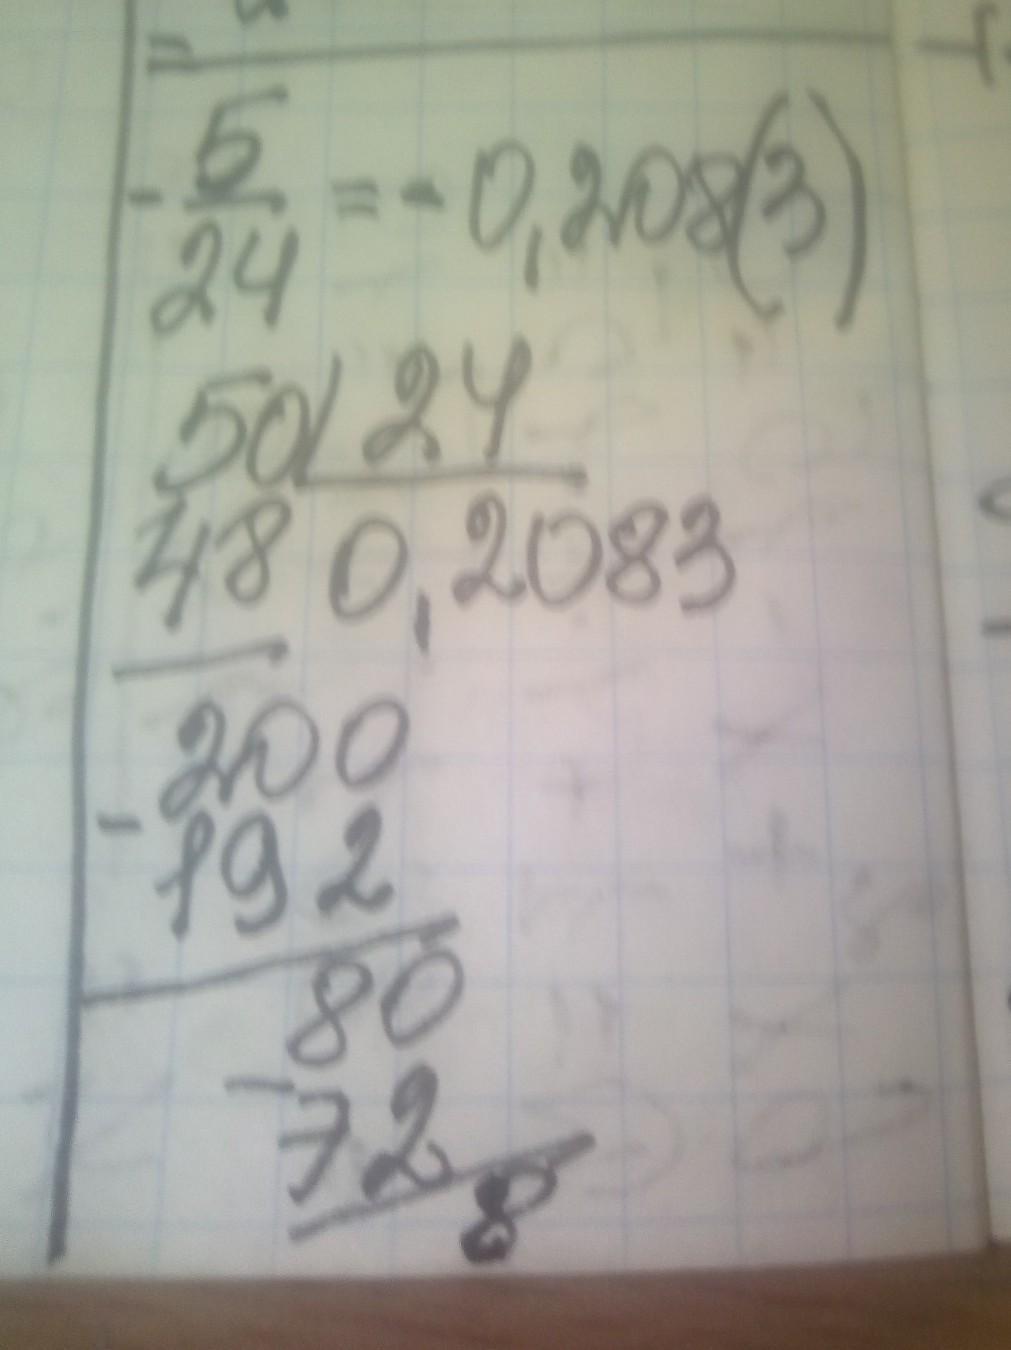 =
- 5/24 = - 0,208(3)
50 | 24
48 0,2083
200
- 192
80
- 72
8